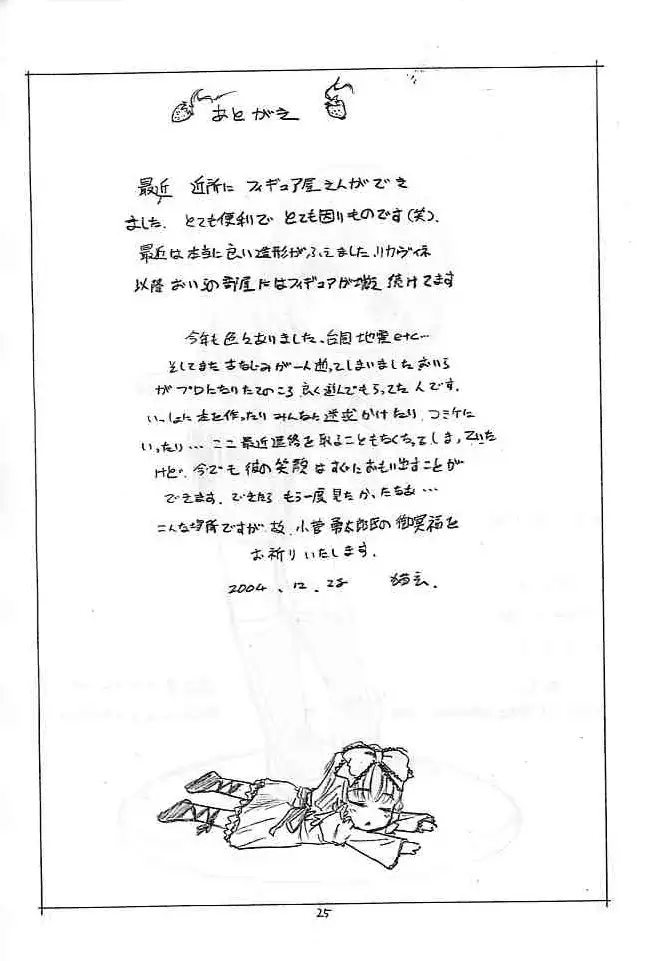 あとがき
最近 近所に フィギュア屋さんができ
ました. とても便利で とても困りものです(笑).
最近は本当に良い造形がふえました. リカヴィネ
以降 おいらの部屋にはフィギュアが増え 続けてます
今年も色々ありました、台風 地震 etc…
そしてまた おさなじみが一人逝ってしまいました おいら
がプロになりたてのころ 良く遊んでもらってた人です.
いっしょに本を作ったり みんなに迷惑かけたり, コミケに
いったり… ここ最近連絡を取ることもなくなってしまっていた
けど. 今でも彼の笑顔はすぐにおもい出すことが
できます. できたら もう一度見たかったなぁ…
こんな場所ですが 故、小菅 勇太郎氏の御冥福を
お祈りいたします.
2004 . 12 . 28
25